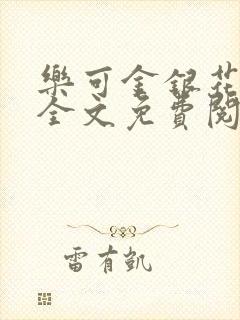 樂可金銀花
全文免費閱
雷有凱